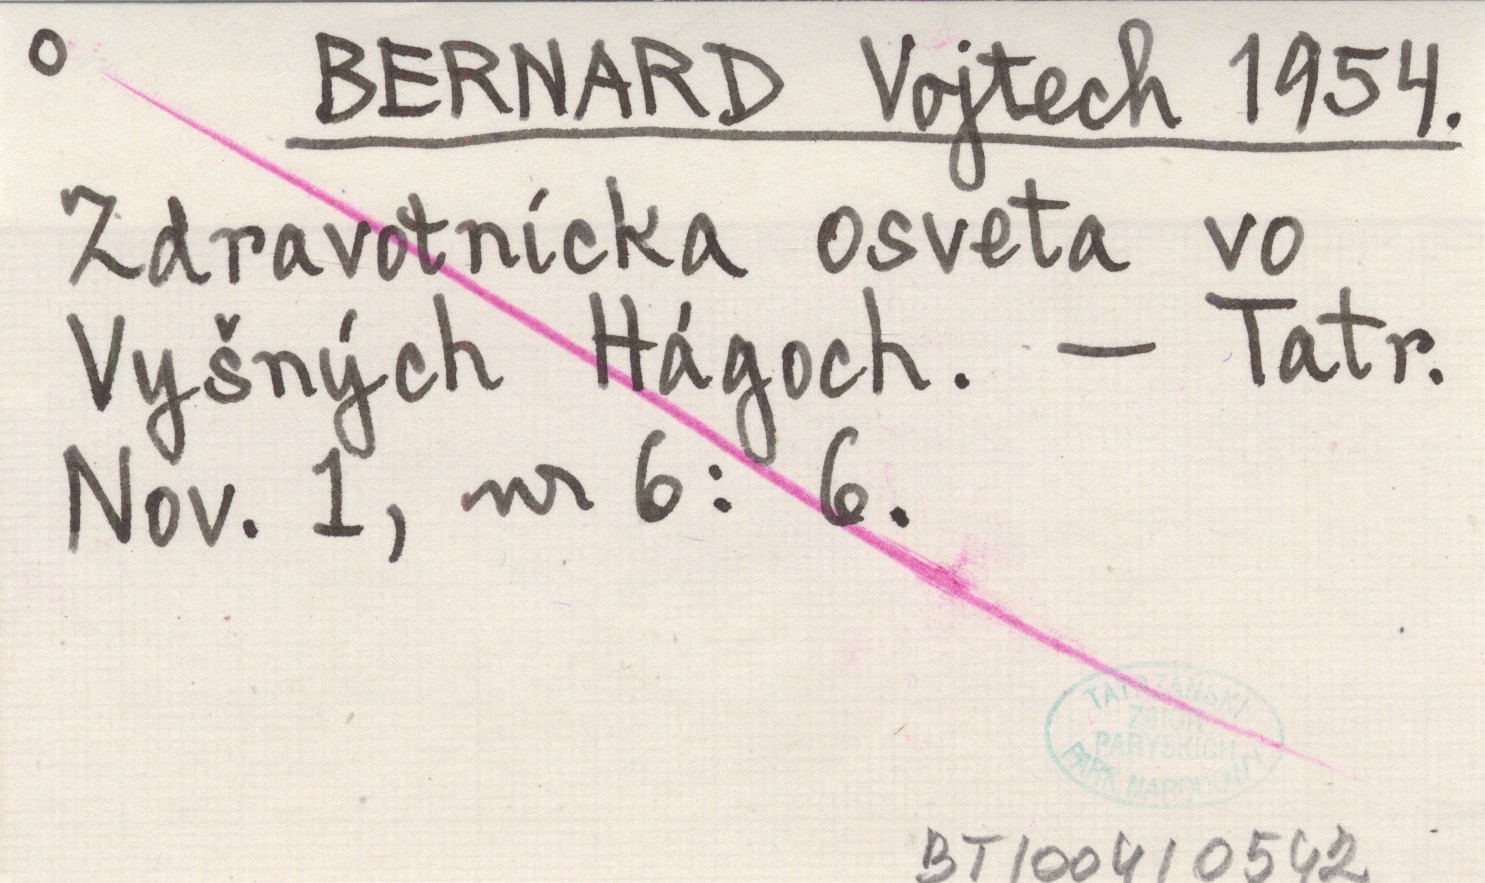 o BERNARD Vojtech 1954.
Zdravotnícka osveta vo
Vyšných Hágoch. — Tatr.
Nov. 1, nr 6: 6.
TATRZAŃSKI
ZBIÓR
PARYSKICH
PARK NARODOWY
BT/004/0542